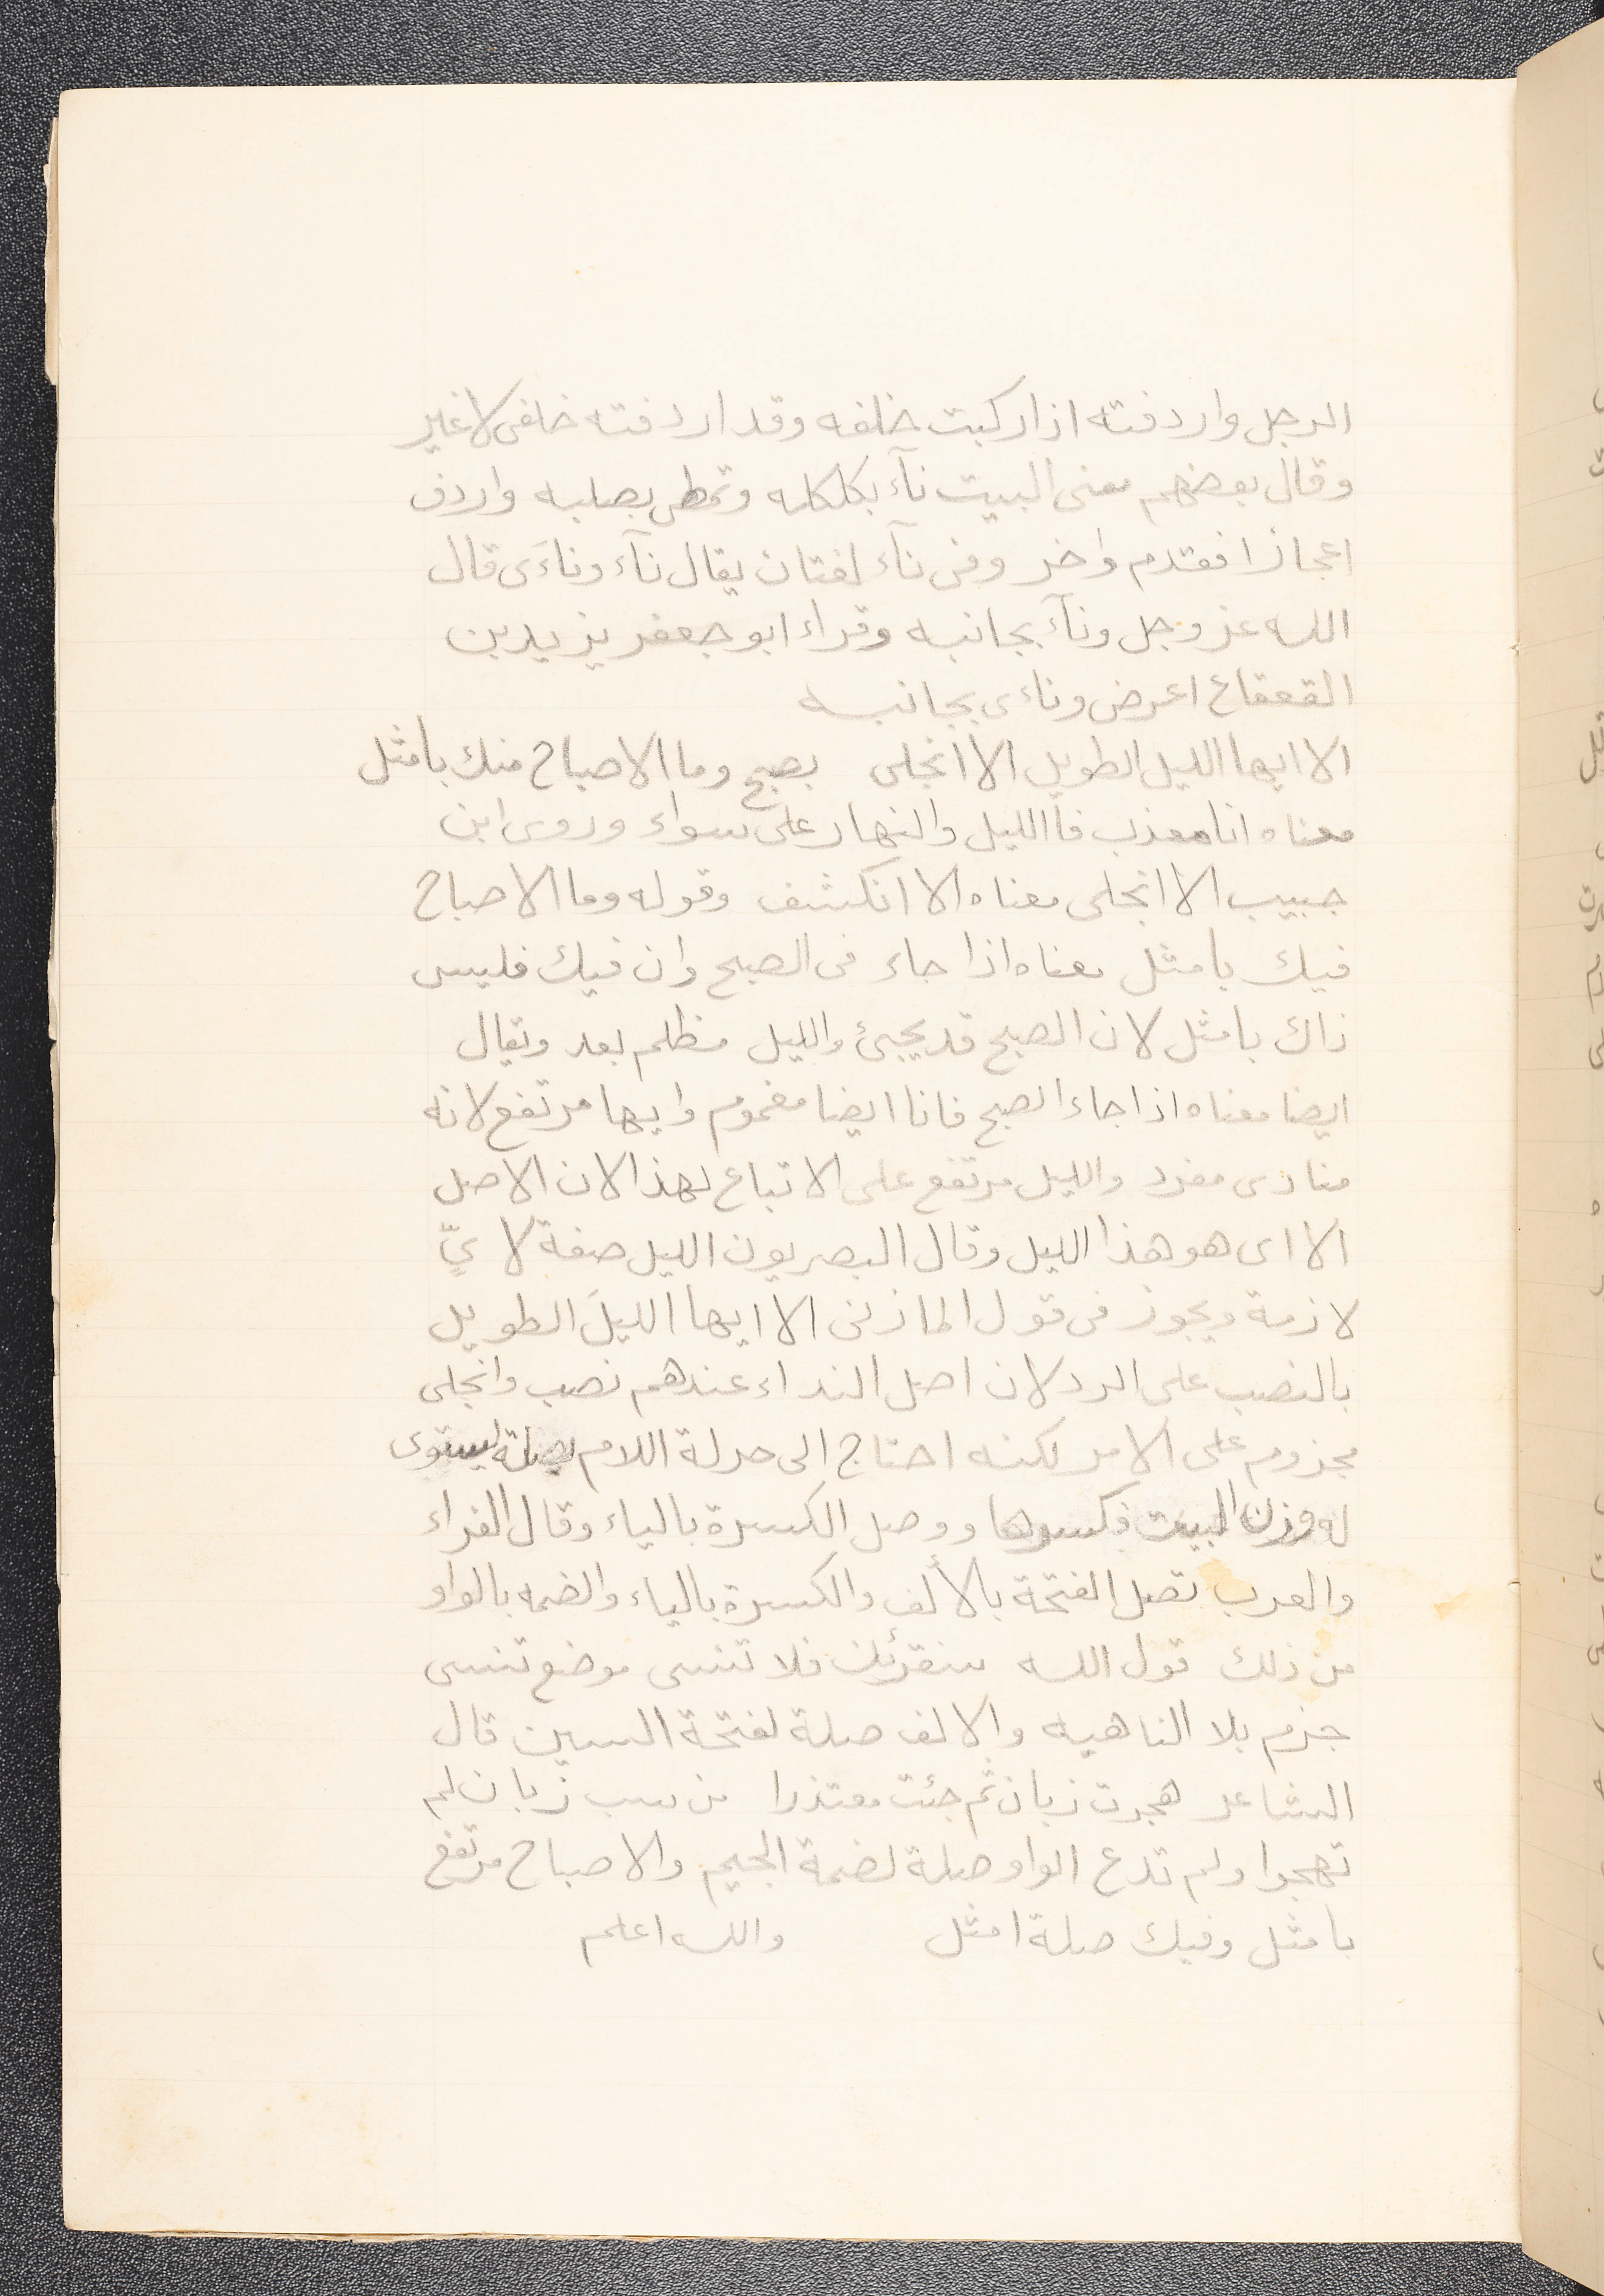 الرجل واردفته اذا ركبت خلفه وقد اردفته خلفى لا غير
وقال بعضهم معنى البيت نآء بكلكله وتمطى بصلبه واردف
اعجازا فقدم واخر وفى نآء لغتان يقال نآء وناءَى قال
الله عز وجل ونآء بجانبه وقراء ابو جعفر يزيد بن
القعقاع اعرض وناءى بجانبه
الا ايها الليل الطويل الا انجلى بصبح وما الاصباح منك بامثل
معناه انا معذب فاالليل والنهار على سواء وروى ابن
حبيب الا انجلى معناه الا انكشف وقوله وما الاصباح
فيك بامثل معناه اذا جاء فى الصبح وان فيك فليس
ذاك بامثل لان الصبح قد يجيئ والليل مظلم بعد ويقال
ايضا معناه اذا جاء الصبح فانا ايضا مغموم وايها مرتفع لانه
منادى مفرد والليل مرتفع على الاتباع لهذا لان الاصل
الا اى هو هذا الليل وقال البصريون الليل صفة لا يٍّ
لازمة ويجوز فى قول المازنى الا ايها الليلَ الطويل
بالنصب على الرد لان اصل النداء عندهم نصب وانجلى
مجزوم على الامر لكنه احتاج الى حركة اللام بصلة ليستوى
له وزن البيت فكسرها ووصل الكسرة بالياء وقال الفراء
والعرب تصل الفتحة بالألف والكسرة بالياء والضمه بالواو
من ذلك قول الله سنقرئك فلا تنسى موضع تنسى
جزم بلا الناهيه والالف صلة لفتحة السين قال
الشاعر هجرت زبان ثم جئت معتذرا من سب زبان لم
تهجوا ولم تدع الواو صلة لضمة الجيم والاصباح مرتفع
بامثل وفيك صلة امثل والله اعلم